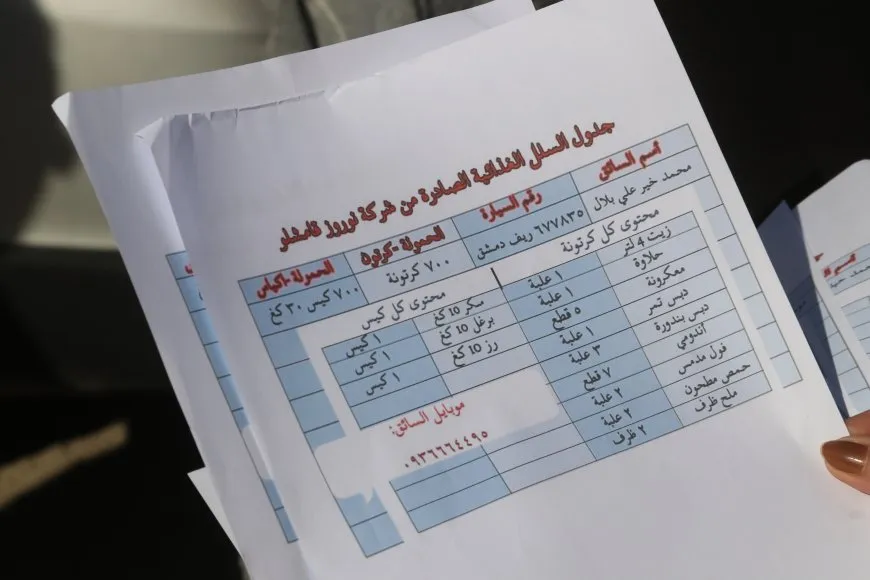 جدول السلل الغذائية الصادرة من شركة نوروز قامشلو
أسم السائق رقم السيارة الحمولة -كرتون الحمولة -اكياس
محمد خير علي بلال ٦٧٧٨٣٥ ريف دمشق ٧٠٠ كرتونة ٧٠٠ كيس ٣٠ كغ
محتوى كل كرتونة محتوى كل كيس
زيت 4 لتر ١ علبة سكر 10 كغ ١ كيس
حلاوة ١ علبة برغل 10 كغ ١ كيس
معكرونة ٥ قطع رز 10 كغ ١ كيس
دبس تمر ١ علبة
دبس بندورة ٣ علبة
أندومي ٧ قطع
فول مدمس ٢ علبة
حمص مطحون ٢ علبة
ملح ظرف ٢ ظرف
موبايل السائق:
٠٩٣٦٦٦٤٤٩٥